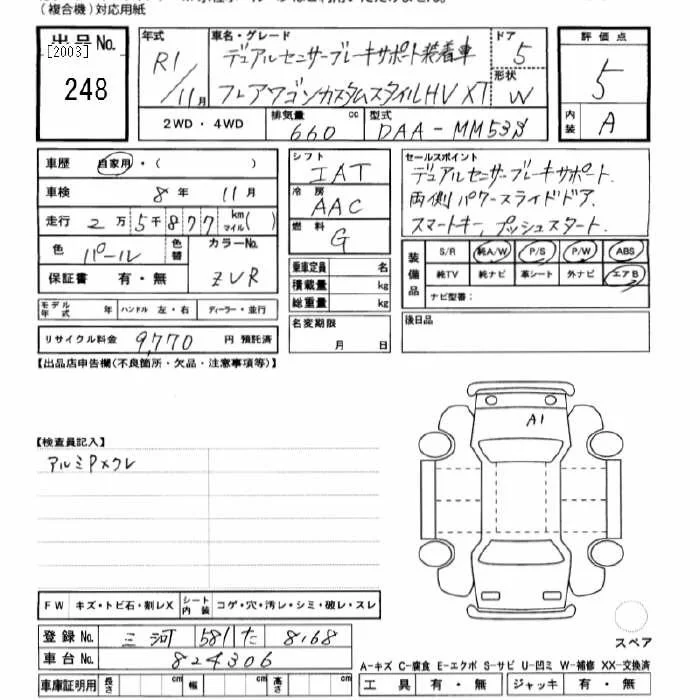 (複合機)対応用紙
出品No.
[2003]
248
年式 R1/11月
車名・グレード
デュアルセンサーブレーキサポート装着車
フレアワゴンカスタムスタイルHV XT
ドア 5
形状 W
評価点 5
内装 A
2WD・4WD
排気量 660 cc
型式 DAA-MM53S
車歴 自家用・( )
車検 8年 11月
走行 2万5千877 km マイル( )
色 パール 色替
カラーNo. ZVR
保証書 有・無
モデル年式 年 ハンドル 左・右 ディーラー・並行
リサイクル料金 9,770 円 預託済
シフト IAT
冷房 AAC
燃料 G
乗車定員 名
積載量 kg
総重量 kg
名変期限 月 日
セールスポイント
デュアルセンサーブレーキサポート.
両側パワースライドドア.
スマートキー, プッシュスタート.
装備品 S/R 純A/W P/S P/W ABS
純TV 純ナビ 革シート 外ナビ エアB
ナビ型番:
後日品
【出品店申告欄(不良箇所・欠品・注意事項等)】
【検査員記入】
アルミPxクレ
A1
FW キズ・トビ石・割レX シート内装 コゲ・穴・汚レ・シミ・破レ・スレ
登録No. 三河 581 た 8168
車台No. 824306
車庫証明用 長さ cm 幅 cm 高さ cm
スペア
A-キズ C-腐食 E-エクボ S-サビ U-凹ミ W-補修 XX-交換済
工具 有・無 ジャッキ 有・無